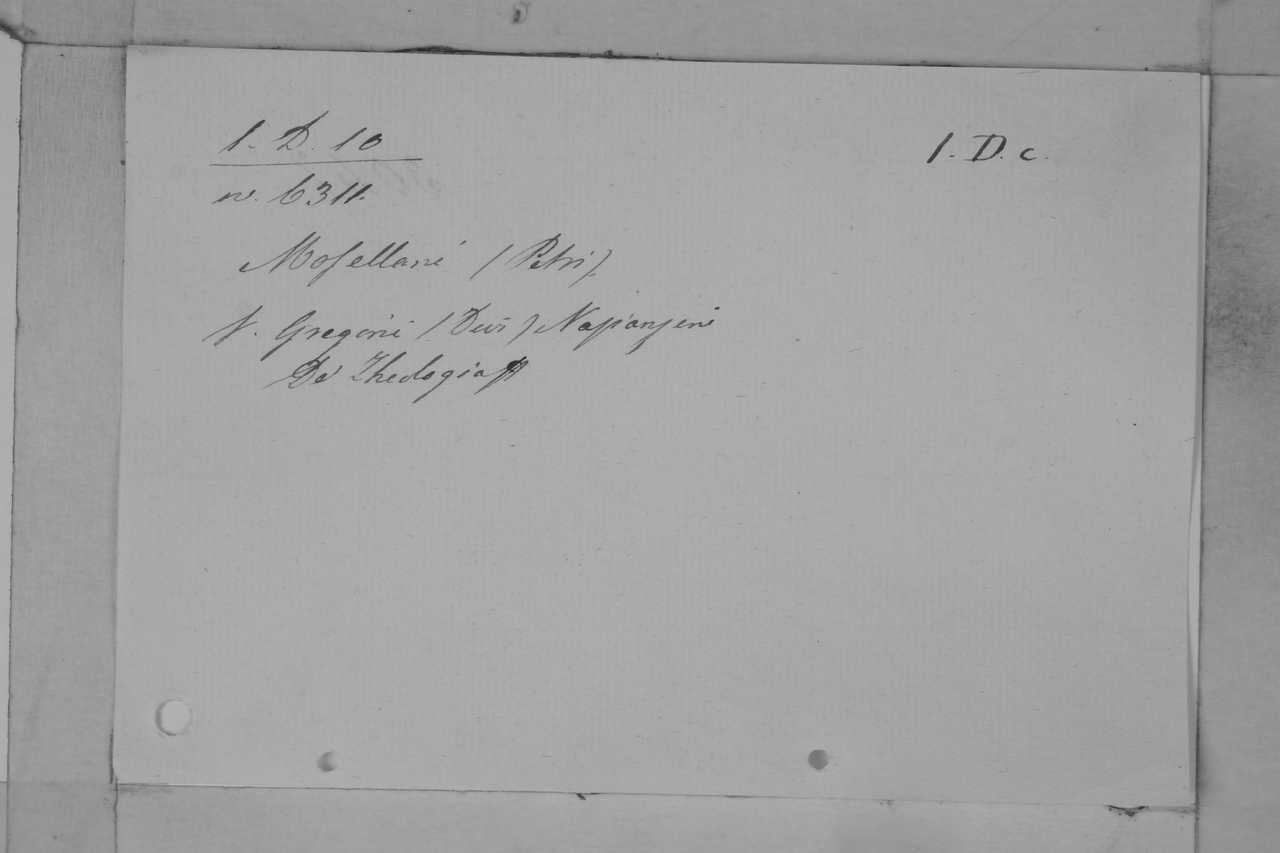 1. D. 10
1. D. c.
n. 6311.
Mosellani (Petri)
v. Gregorii (Divi) Nazianzeni
De Theologia